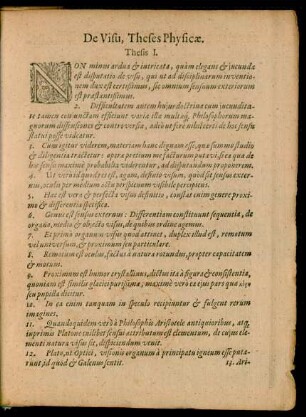 De Visu, Theses Physicæ.
Thesis I.
NON minus ardua & intricata, quàm elegans & iucunda
est disputatio de visu, qui ut ad disciplinarum inventio-
nem dux est certissimus, sic omnium sensuum exteriorum
est præstantissimus.
2. Difficultatem autem huius doctrinæ cum iucundita-
te tamen coniunctam efficiunt variæ istæ multorum Philosophorum ma-
gnorum dissensiones & controversiæ, adeò ut fere nihil certi de hoc sensu
statui posse videatur.
3. Cum igitur viderem, materiam hanc dignam esse, quæ summo studio
& diligentia tractetur: opera pretium me facturum putavi, si ea quæ de
hoc sensu maximè probabilia viderentur, ad disputandum proponerem.
4. Ut verò id quod res est, agam, definio visum, quòd sit sensus exter-
nus, oculis per medium actu perspicuum visibile percipiens.
5. Hæc est vera & perfecta visus definitio, constat enim genere proxi-
mo & differentia specifica.
6. Genus est sensus externus: Differentiam constituunt sequentia, de
organo, medio & obiecto visus, de quibus ordine agemus.
7. Et primò organum visus quod attinet, duplex illud est, remotum
vel universum, & proximum seu particulare.
8. Remotum est oculus, factus à natura rotundus, propter capacitatem
& motum.
9. Proximum est humor crystallinus, dictus ita à figura & consistentia,
quoniam est similis glaciei purissimæ, maximè verò ea eius pars quæ
seu pupilla dicitur.
10. In ea enim tanquam in speculo recipiuntur & fulgent rerum
imagines.
11. Quandoquidem verò à Philosophis Aristotele antiquioribus, atq;
inprimis Platone cuilibet sensui attributum est elementum, de cuius ele-
menti natura visus sit, dispiciendum venit.
12. Plato, ut Optici, visionis organum à principatu igneum esse puta-
runt, id quod & Galenus sentit.
13. Ari-